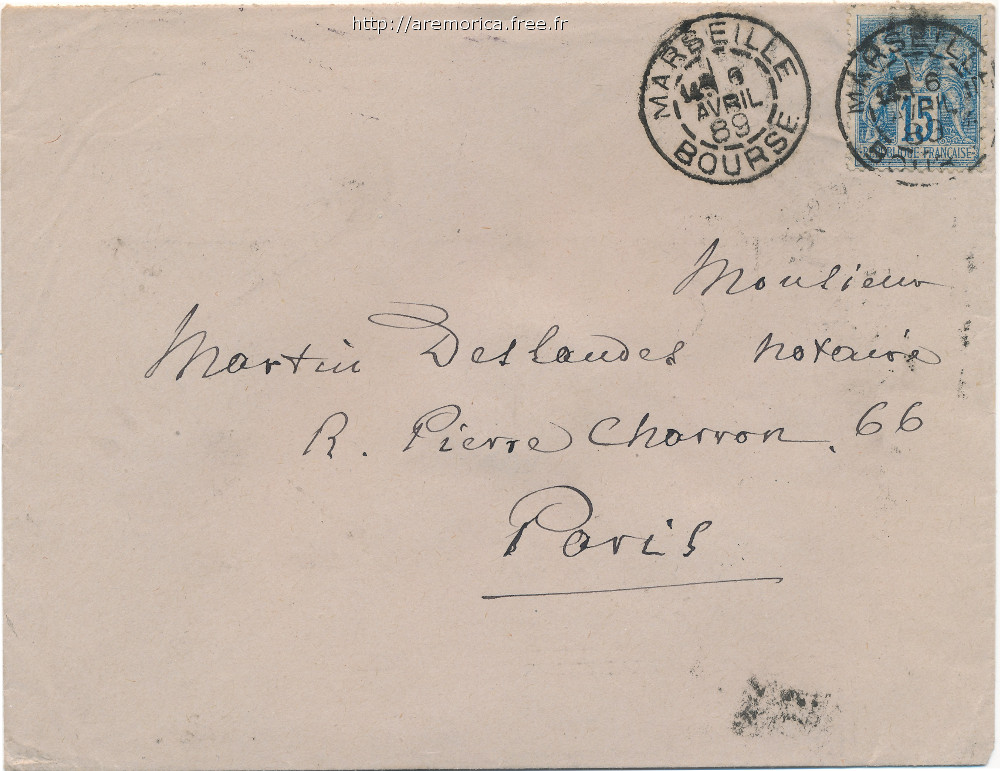 http://aremorica.free.fr
MARSEILLE
6
AVRIL
89
BOURSE
MARSEILLE
6
15
REPUBLIQUE FRANÇAISE
Monsieur
Martin Deslandes notaire
R. Pierre Charron, 66
Paris